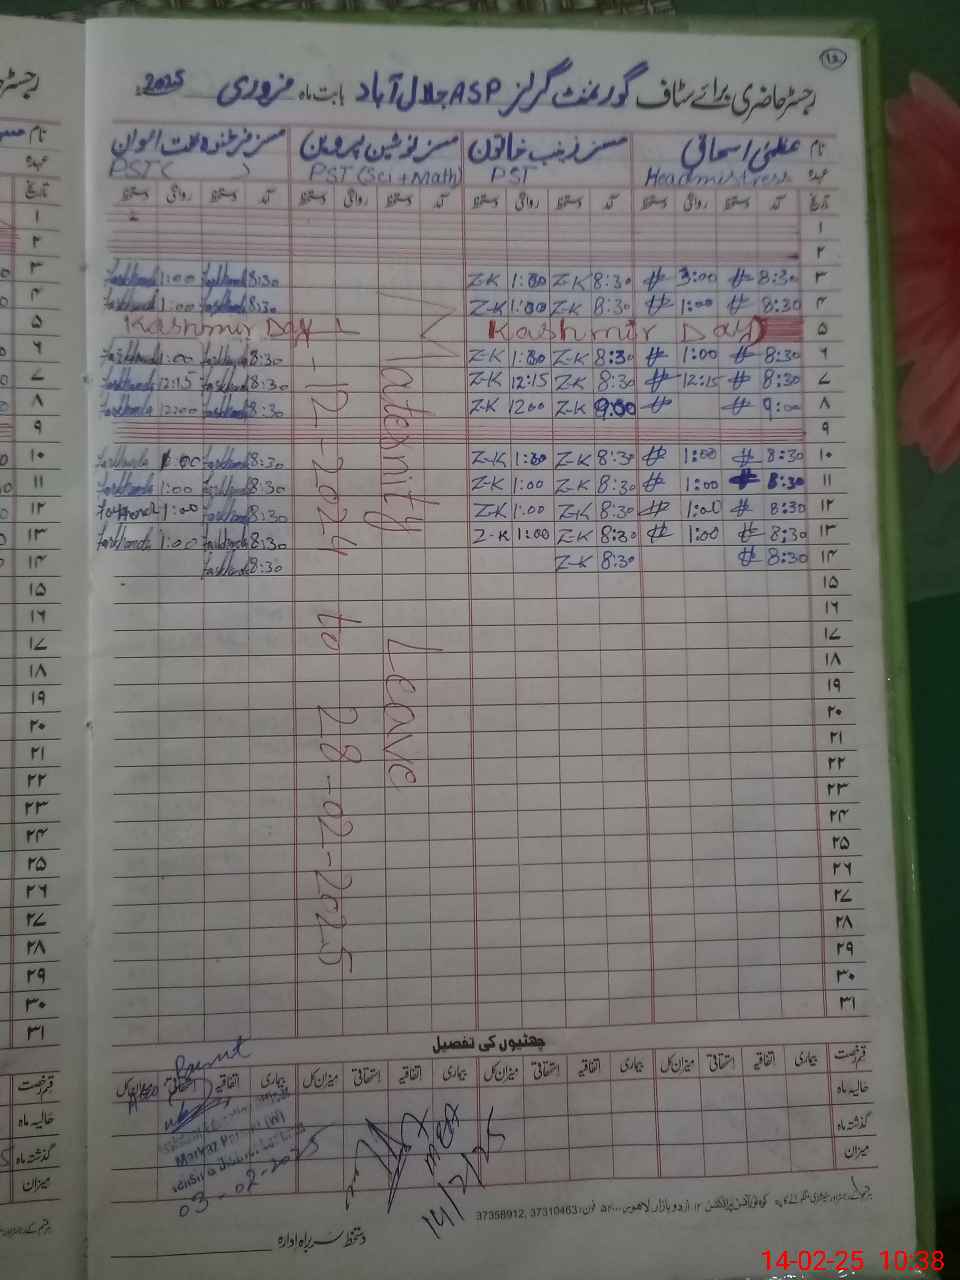 ۱۶
رجسٹر حاضری برائے سٹاف گورنمنٹ گرلز ASP جلال آباد بابت ماہ فروری 2025
نام عظمیٰ اسحاقی مسز زینب خاتون مسز نوشین پروین مسز فرخندہ
عہدہ Headmistress PST PST (Sci + Math) PST (
تاریخ آمد دستخط روانگی دستخط آمد دستخط روانگی دستخط آمد دستخط روانگی دستخط آمد دستخط روانگی دستخط
۱
۲
۳ 8:30 # 3:00 # 8:30 Z-K 1:00 Z-K 8:30 Farkhanda 1:00 Farkhanda
۴ 8:30 # 1:00 # 8:30 Z-K 1:00 Z-K 8:30 Farkhanda 1:00 Farkhanda
۵ Kashmir Day Kashmir Day
۶ 8:30 # 1:00 # 8:30 Z-K 1:00 Z-K 8:30 Farkhanda 1:00 Farkhanda
۷ 8:30 # 12:15 # 8:30 Z-K 12:15 Z-K 8:30 Farkhanda 12:15 Farkhanda
۸ 9:00 # # 9:00 Z-K 1200 Z-K 8:30 Farkhanda 12:00 Farkhanda
۹
۱۰ 8:30 # 1:00 # 8:30 Z-K 1:00 Z-K 8:30 Farkhanda 1:00 Farkhanda
۱۱ 8:30 # 1:00 # 8:30 Z-K 1:00 Z-K 8:30 Farkhanda 1:00 Farkhanda
۱۲ 8:30 # 1:00 # 8:30 Z-K 1:00 Z-K 8:30 Farkhanda 1:00 Farkhanda
۱۳ 8:30 # 1:00 # 8:30 Z-K 1:00 Z-K 8:30 Farkhanda 1:00 Farkhanda
۱۴ 8:30 # 8:30 Z-K 8:30 Farkhanda
۱۵
۱۶
۱۷
۱۸
۱۹
۲۰
۲۱
۲۲
۲۳
۲۴
۲۵
۲۶
۲۷
۲۸
۲۹
۳۰
۳۱
Maternity Leave
1-12-2024 to 28-02-2025
چھٹیوں کی تفصیل
قسم رخصت بیماری اتفاقیہ استحقاقی میزان کل بیماری اتفاقیہ استحقاقی میزان کل بیماری اتفاقیہ استحقاقی میزان کل بیماری اتفاقیہ استحقاقی میزان کل
حالیہ ماہ
گذشتہ ماہ
میزان
Markaz
(W)
03-02-2025
14/2/25
اردو بازار لاہور فون: 37358912, 37310463
دستخط سربراہ ادارہ
نام
عہدہ
تاریخ
۱
۲
۳
۴
۵
۶
۷
۸
۹
۱۰
۱۱
۱۲
۱۳
۱۴
۱۵
۱۶
۱۷
۱۸
۱۹
۲۰
۲۱
۲۲
۲۳
۲۴
۲۵
۲۶
۲۷
۲۸
۲۹
۳۰
۳۱
قسم رخصت
حالیہ ماہ
گذشتہ ماہ
میزان
14-02-25 10:38